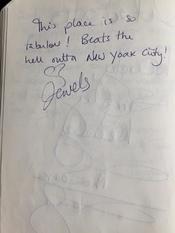 This place is so
fabulous! Beats the
hell outta New Yoak City!
Jewels